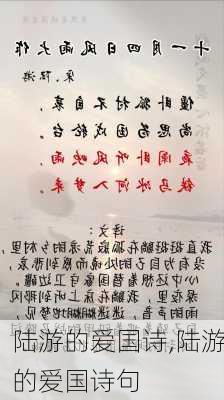 十一月四日风雨大作
宋 陆游
僵卧孤村不自哀,
尚思为国戍轮台。
夜阑卧听风吹雨,
铁马冰河入梦来。
译文:
我直挺挺躺在孤寂荒凉的乡村里,
没有为自己的处境而感到悲哀,
心中还想着替国家守卫边疆。
夜深了,我躺在床上听到那风
雨的声音,迷迷糊糊地梦见,
陆游的爱国诗,陆游
的爱国诗句